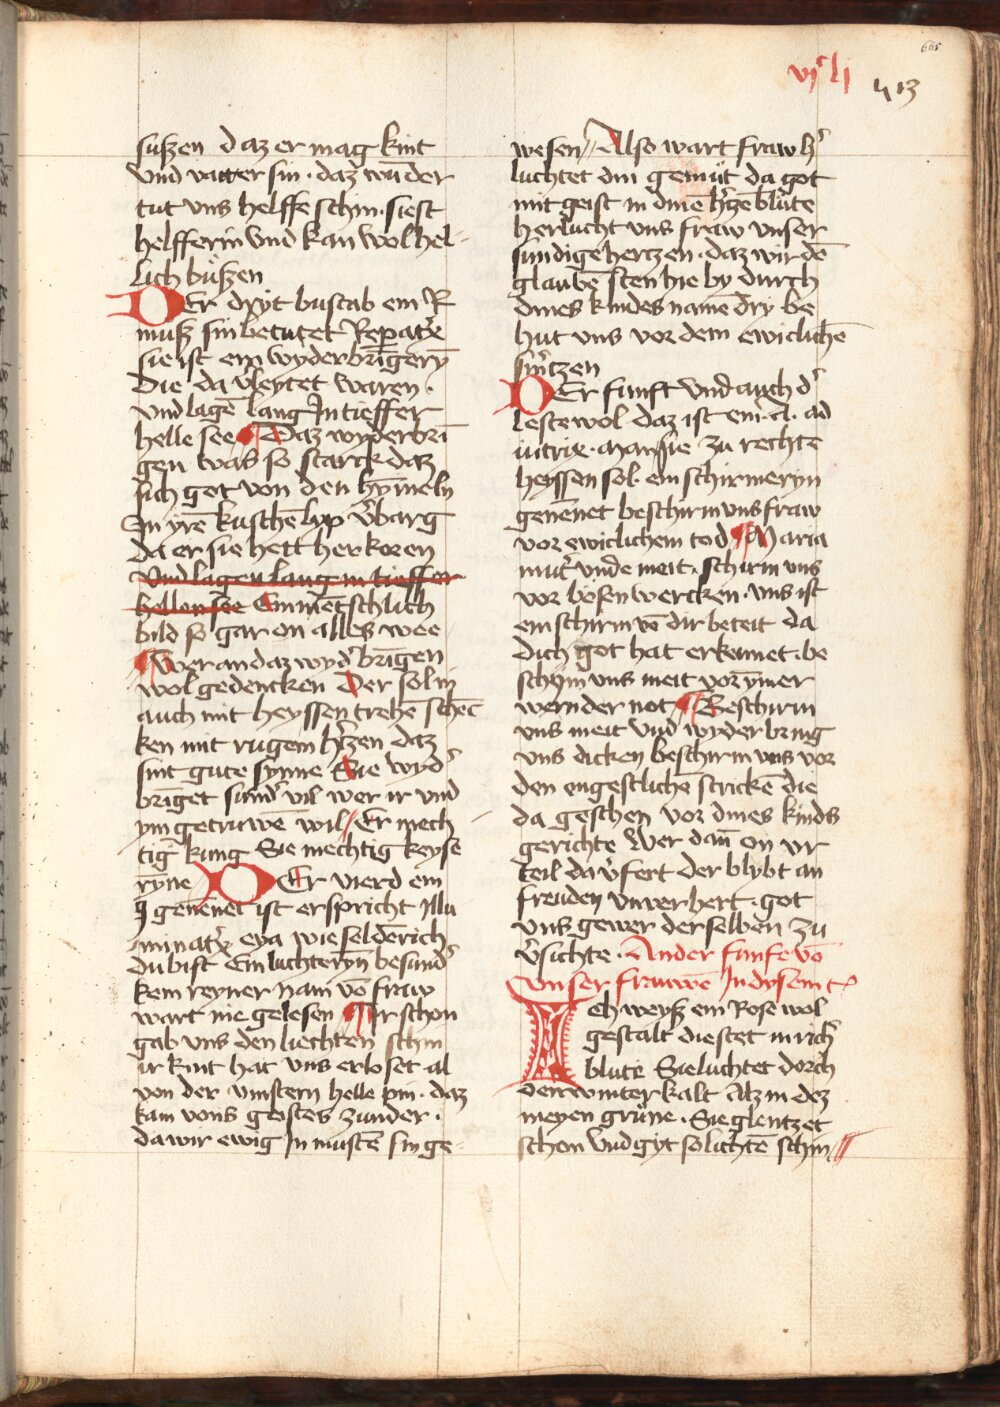 665
vjᶜ lj
513
suszen daz er mag kint
vnd vatter sin · daz wūder
tut vns helffe schin · sie ist
helfferin vnd kan wol hel-
lich büszen
DEr dryt bustab ein R
musz sin betutet Reparatͬx
sie ist ein wyderbrīgerȳ
Die da v̓leytet waren ·
vnd lagē lang In tieffer
helle see Daz wyderbrī
gen was so starck daz
sich got von den hȳmeln
In yrē kuschē lyp v̓barg
da er sie hett her koren
vnd lagen lang in tieffer
hellen see Ein mētschlich
bild so gar on alles wee
Wer an daz wyd̓ brīgen
wol gedencken Der sol in
auch mit heyssen trehē schēc
ken mit rugem h̓zen daz
sint gute synne Sie wyd̓
brīget sund̓ vil wer ir vnd
ym getruwē wil Er mech
tig kung Sie mechtig keyse
ryne DEr vierd ein
J genēnet ist er spricht Illu
minatͬx eya wie seldērich
du bist Ein luchterȳn besund̓
kein reyner nam vō fraw
wart nie gelesen Ir schon
gab vns den liechten schin
ir kint hat vns erloset al
von der vinstern helle pin · daz
kam vons geistes zunder ·
da wir ewig In mustē sin ge-
wesen Also wart fraw h̓
luchtet din gemüt da got
mit geist in dine h̓ge blüte
herlucht vns fraw vnser
sundige hertzen · daz wir dē
glaubē sten hie by durch
dines kindes namē dry be
hut vns vor dem ewiclichē
smͬtzen
DEr funft vnd auch d̓
leste wol daz ist ein · A · ad
iutrix · man sie zu rechte
heyssen sol · ein schirmeryn
genēnet beschirm vns fraw
vor ewiclichem tod Maria
mut̓ vnde meit · schirm vns
vor bösen wercken · vns ist
ein schirm vō dir beteit da
dich got hat erkennet · be
schirm vns meit vor ymer
wernder not Beschirm
vns meit vnd wyder bring
vns dicken beschirm vns vor
den engestlichē strickē die
da geschen vor dines kinds
gerichte Wer dan̄ on vr
teil da v̓fert der blybt an
freuden vnverhert · got
vns gewer der selben zu
v̓sichte · Ander funfe vō
vnser frauwē In dysem t
Ich weysz ein Rose wol
gestalt die stet in rich̓
blüte Sie luchtet dorch
den winter kalt Alz in dez
meyen grüne · Sie glentzet
schon vnd gyt so lichtē schin